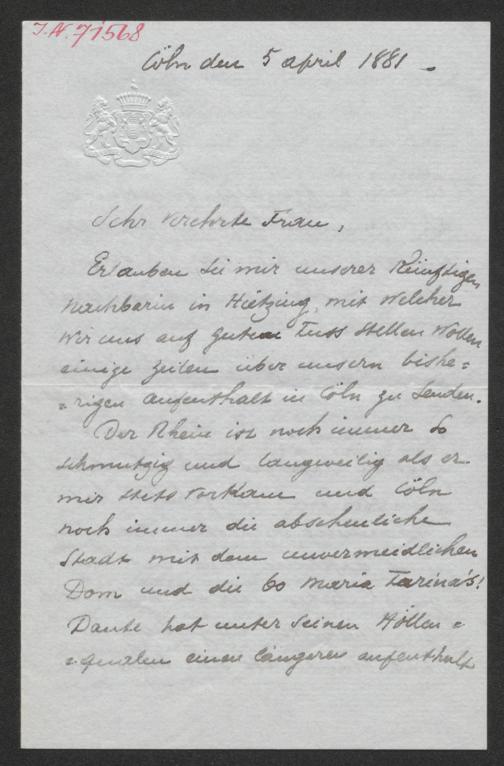 I.N. 71568
Cöln den 5 april 1881.
Sehr verehrte Frau,
Erlauben Sie mir unserer Künftigen
Nachbarin in Hietzing, mit Welcher
Wir uns auf guten Fuss Stellen Wollen
einige Zeilen über unsern bishe=
=rigen aufenthalt in Cöln zu Senden.
Der Rhein ist noch immer So
Schmutzig und langweilig als er
mir Stets Vorkam und Cöln
noch immer die abscheuliche
Stadt mit dem unvermeidlichen
Dom und die 60 Maria Farina's!
Dante hat unter Seinen Höllen=
=qualen einen längeren aufenthalt